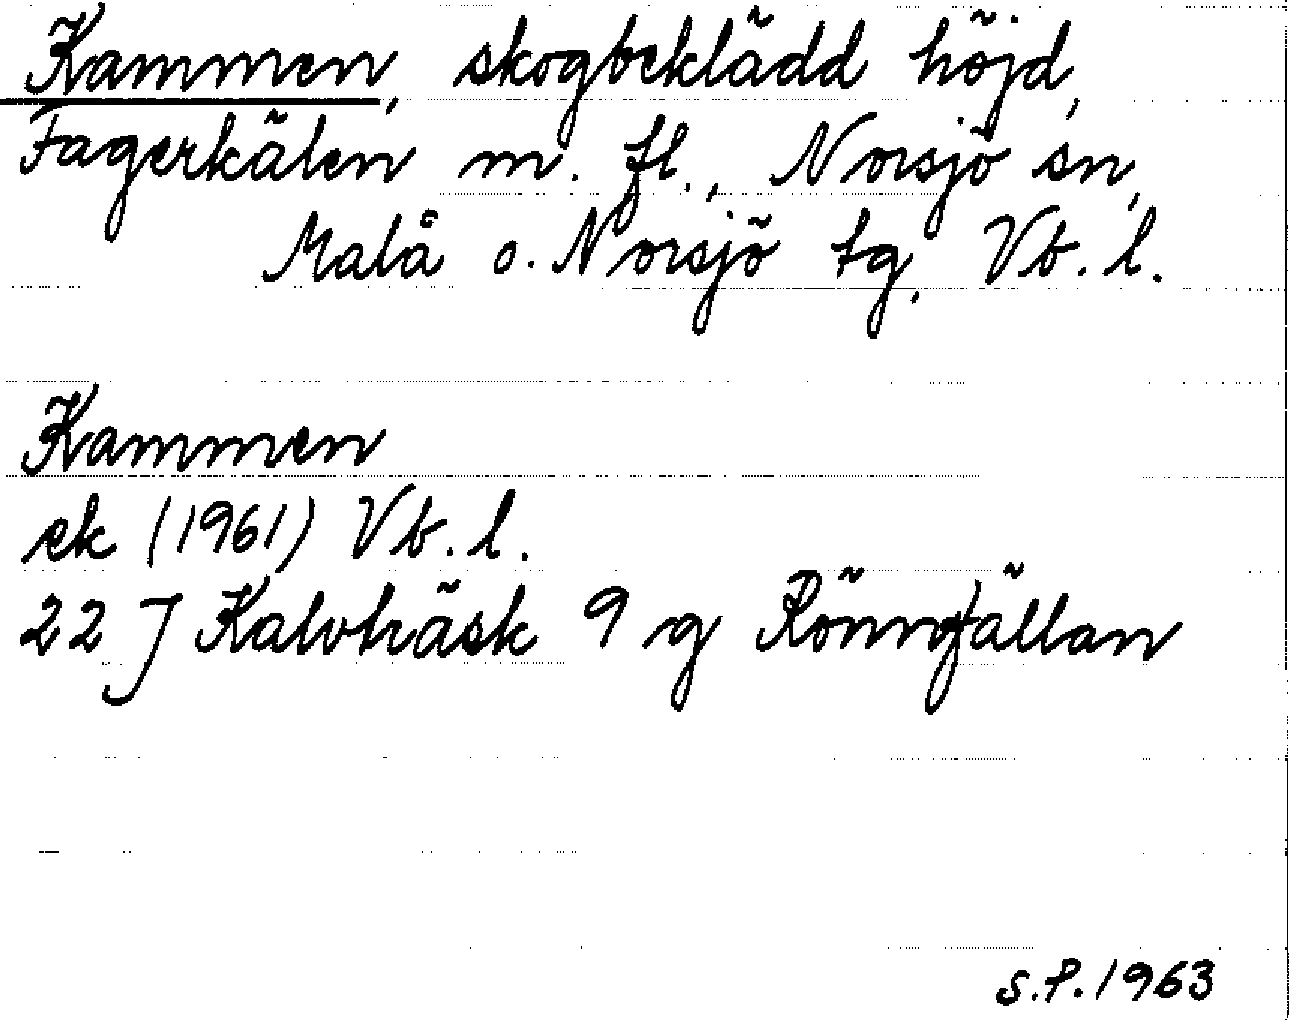 Kammen, skogbeklädd höjd,
Fagerkälen m. fl., Norsjö sn,
Malå o. Norsjö tg, Vb. l.
Kammen
ek (1961) Vb. l.
22 J Kalvträsk 9 g Rönnfällan
S.P. 1963